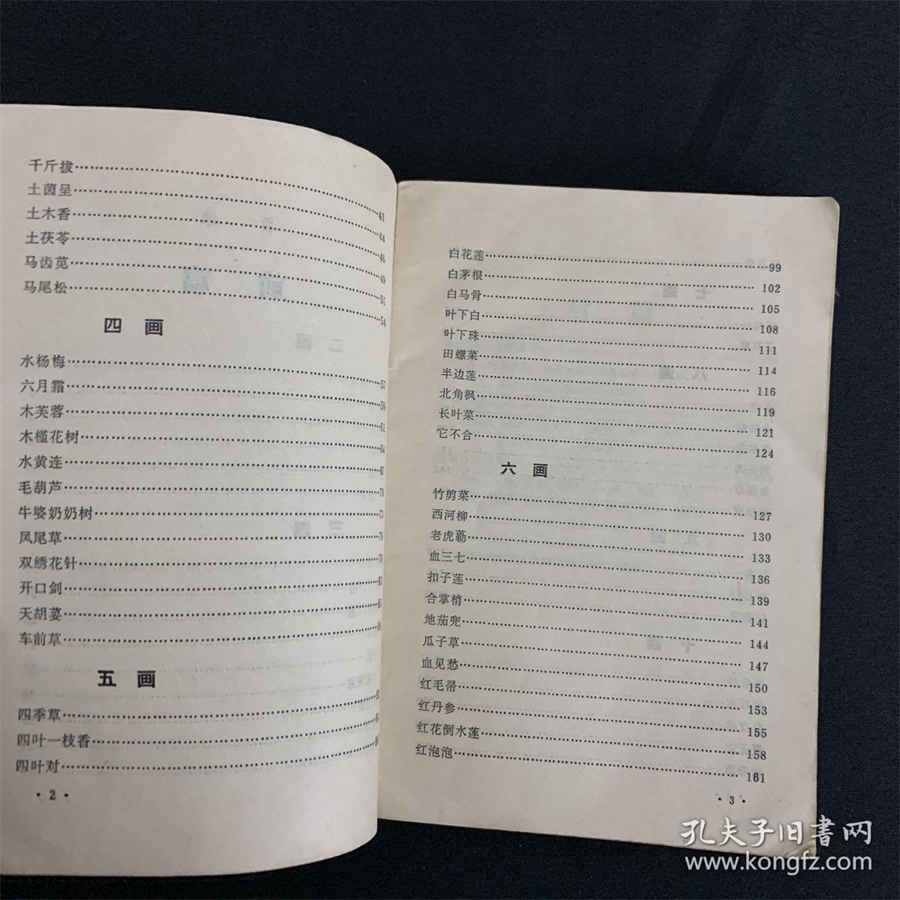 千斤拔
土茵呈……61
土木香……64
土茯苓
马齿苋
马尾松……54
四 画
水杨梅……57
六月霜……59
木芙蓉
木槿花树
水黄连
毛葫芦
牛婆奶奶树
凤尾草
双绣花针
开口剑
天胡荽
车前草
五 画
四季草
四叶一枝香
四叶对
·2·
白花莲……99
白茅根……102
白马骨……105
叶下白……108
叶下珠……111
田螺菜……114
半边莲……116
北角枫……119
长叶菜……121
它不合……124
六 画
竹剪菜……127
西河柳……130
老虎葂……133
血三七……136
扣子莲……139
合掌梢……141
地茄兜……144
瓜子草……147
血见愁……150
红毛帚……153
红丹参……155
红花倒水莲……158
红泡泡……161
·3·
孔夫子旧書网
www.kongfz.com